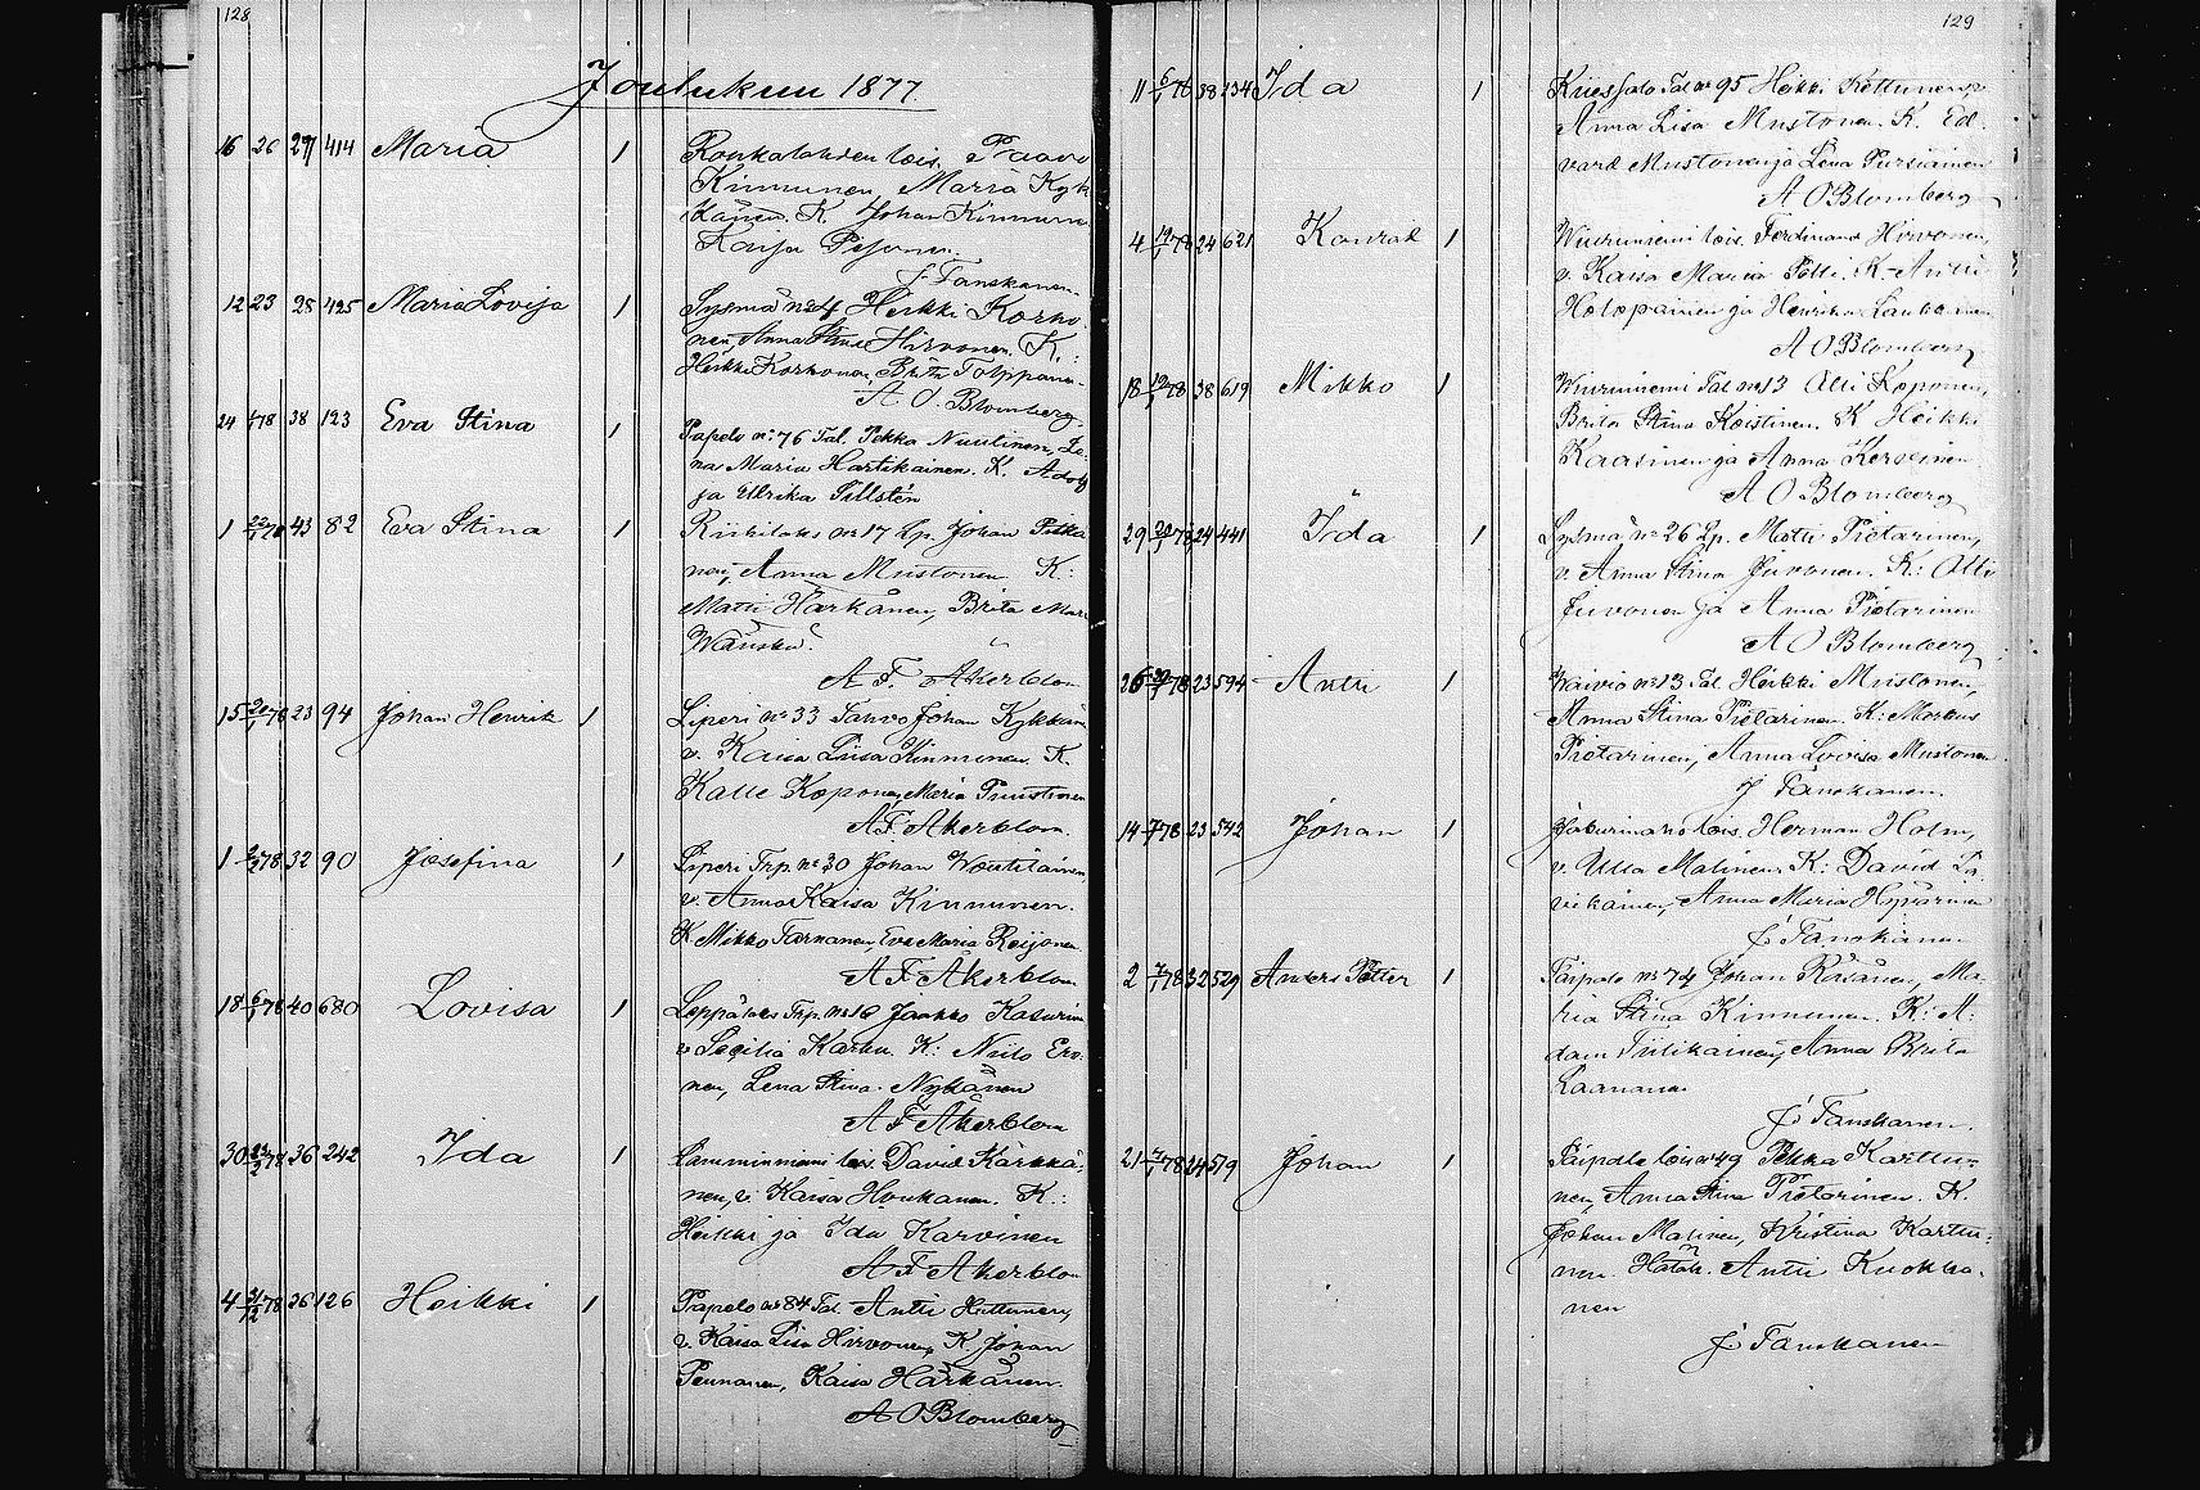 128
Joulukuu 1877.
16 26 27 414 Maria 1 Roukalahden lois. Paavo
Kinnunen, Maria Kyk
känen. K. Johan Kinnunen
Kaisa Pesonen.
J. Tanskanen.
12 23 28 425 Maria Lovisa 1 Sysmä no 4 Heikki Korho
nen, Anna Stina Hirvonen. K.:
Heikki Korhonen, Brita Tolppanen
A. O. Blomberg.
24 1/1 78 38 123 Eva Stina 1 Papelo no: 76 Tal. Pekka Nuutinen, Le
na Maria Hartikainen. K. Adolf
ja Ulrika Tillstén
1 43 82 Eva Stina 1 Riihilaks no 17 Lp. Johan Pitkä
nen, Anna Mustonen. K.:
Matti Härkänen, Brita Mari
Wänskä.
A. F. Åkerblom
15 20/1 78 23 94 Johan Henrik 1 Liperi no 33 Tahvo Johan Kykkän
v. Kaisa Liisa Kinnunen. K.
Kalle Koponen, Maria Puustinen
A F Åkerblom.
1 2/2 78 32 90 Josefina 1 Liperi Trp. no 30 Johan Woutilainen,
v. Anna Kaisa Kinnunen.
K. Mikko Tarnanen, Eva Maria Reijonen.
A F Åkerblom
18 6/1 78 40 680 Lovisa 1 Leppälaks Trp. no 16 Jaakko Kasurinen
v. Secilia Karhu. K: Niilo Ero-
nen, Lena Stina Nykänen
A F Åkerblom
30 78 36 242 Ida 1 Lamminniemi lois. David Kärkkä-
nen, v. Kaisa Houkanen. K.:
Heikki ja Ida Karvinen
A F Åkerblom
4 78 26 126 Heikki 1 Papelo no 84 Tal. Antti Huttunen,
v. Kaisa Lisa Hirvonen, K. Johan
Pennanen, Kaisa Härkänen.
A O Blomberg
129
11 6/1 78 38 234 Ida 1 Kriessalo Tal no 95 Heikki Kettunen, v.
Anna Lisa Mustonen. K. Ed-
vard Mustonen ja Lena Pursiainen
A O Blomberg
4 19/1 78 24 621 Konrad 1 Wiuruniemi lois. Ferdinand Hirvonen,
v. Kaisa Maria Polli. K. Antti
Holopainen ja Henrika Laukkanen
A O Blomberg
18 19/1 78 38 619 Mikko 1 Wiuruniemi Tal no 13 Olli Koponen,
Brita Stina Koistinen. K Heikki
Kaasinen ja Anna Kervinen
A O Blomberg
29 20/1 78 24 441 Ida 1 Sysmä no 26 Lp. Matti Pietarinen,
v. Anna Stina Juvonen. K.: Olli
Juvonen ja Anna Pietarinen
A O Blomberg
26 78 23 594 Antti 1 Waivio no 13 Tal. Heikki Mustonen,
Anna Stina Pietarinen. K: Markus
Pietarinen, Anna Lovisa Mustonen.
J Tanskanen.
14 78 23 542 Johan 1 lois. Herman Holm,
v. Ulla Malinen. K: David La
vikainen, Anna Maria Hyvärinen
J Tanskanen.
2 7/1 78 32 529 Anders Petter 1 Taipale no 74 Johan Räsänen, Ma-
ria Stina Kinnunen. K.: A-
dam Tiilikainen, Anna Brita
Laananen
J Tanskanen.
21 7/1 78 24 519 Johan 1 Taipale lois no 49 Pekka Karttu-
nen, Anna Stina Pietarinen. K.
Johan Malinen, Kristina Karttu-
nen. Hätäk. Antti Kuokka-
nen
J. Tanskanen